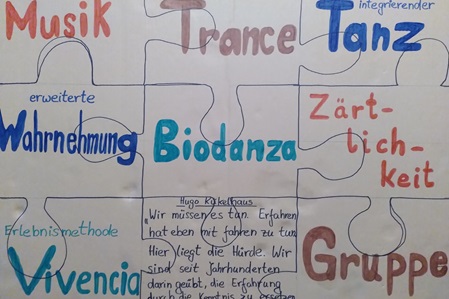 Musik
Trance
integrierender
Tanz
erweiterte
Wahrnehmung
Biodanza
Zärt-
lich-
keit
Erlebnismethode
Vivencia
Hugo Kükelhaus
"Wir müssen es tan. Erfahren
hat eben mit fahren zu tun
Hier liegt die Hürde. Wir
sind seit Jahrhunderten
darin geübt, die Erfahrung
durch die Kenntnis zu ersetzen
Gruppe